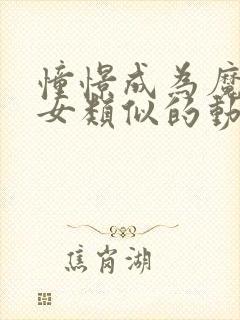 憧憬成為魔
女類似的動
焦岗湖